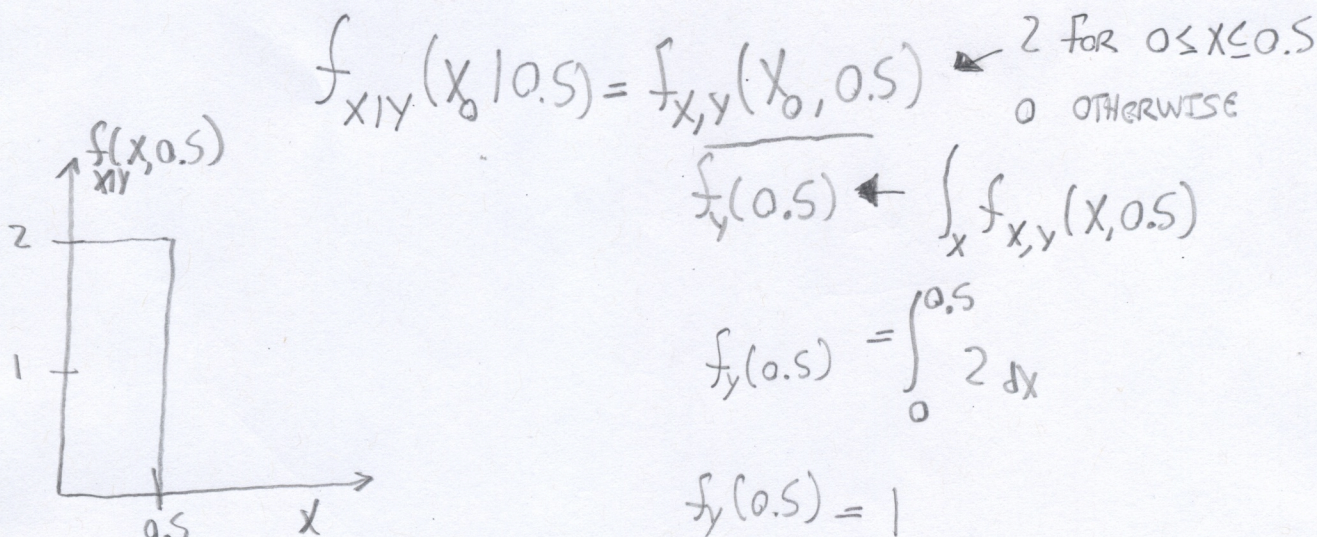 f_{X|Y}(X_0|0.5) = f_{X,Y}(X_0, 0.5) ← 2 FOR 0≤X≤0.5
0 OTHERWISE
f_y(0.5) ← ∫_X f_{X,Y}(X, 0.5)
f_y(0.5) = ∫_0^{0.5} 2 dx
f_y(0.5) = 1
f_{X|Y}(X, 0.5)
2
1
0.5
X